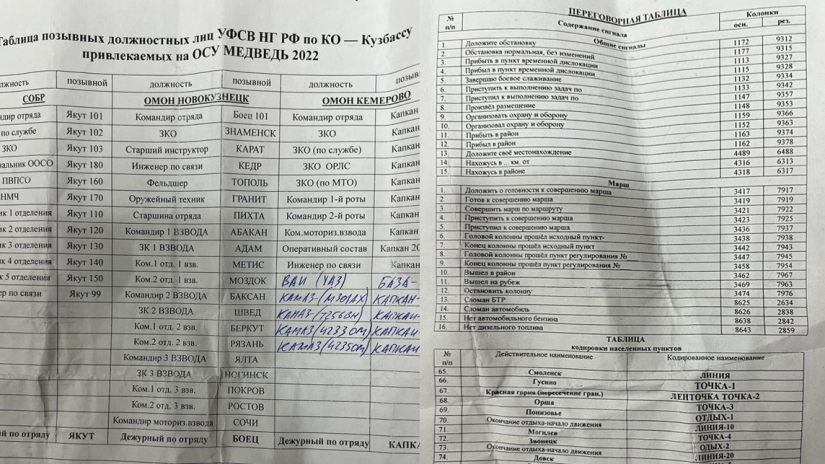 Таблица позывных должностных лиц УФСВ НГ РФ по КО — Кузбассу
привлекаемых на ОСУ МЕДВЕДЬ 2022
позывной должность позывной должность
СОБР ОМОН НОВОКУЗНЕЦК ОМОН КЕМЕРОВО
отряда Якут 101 Командир отряда Боец 101 Командир отряда Капкан
по службе Якут 102 ЗКО ЗНАМЕНСК ЗКО Капкан
ЗКО Якут 103 Старший инструктор КАРАТ ЗКО (по службе) Капкан
ООСО Якут 180 Инженер по связи КЕДР ЗКО ОРЛС Капкан
ПВПСО Якут 160 Фельдшер ТОПОЛЬ ЗКО (по МТО) Капкан
НМЧ Якут 170 Оружейный техник ГРАНИТ Командир 1-й роты Капкан
1 отделения Якут 110 Старшина отряда ПИХТА Командир 2-й роты Капкан
2 отделения Якут 120 Командир 1 ВЗВОДА АБАКАН Ком.моториз.взвода Капкан
3 отделения Якут 130 ЗК 1 ВЗВОДА АДАМ Оперативный состав Капкан
4 отделения Якут 140 Ком.1 отд. 1 взв. МЕТИС Инженер по связи Капкан
5 отделения Якут 150 Ком.2 отд. 1 взв. МОЗДОК ВАИ (УАЗ) БАЗА-
по связи Якут 99 Командир 2 ВЗВОДА БАКСАН КАМАЗ КАПКАН-
ЗК 2 ВЗВОДА ШВЕД КАМАЗ КАПКАН
Ком.1 отд. 2 взв. БЕРКУТ КАМАЗ КАПКАН
Ком.2 отд. 2 взв. РЯЗАНЬ КАМАЗ КАПКАН
Командир 3 ВЗВОДА ЯЛТА
ЗК 3 ВЗВОДА НОГИНСК
Ком.1 отд. 3 взв. ПОКРОВ
Ком.2 отд. 3 взв. РОСТОВ
Командир моториз.взвода СОЧИ
по отряду ЯКУТ Дежурный по отряду БОЕЦ Дежурный по отряду
ПЕРЕГОВОРНАЯ ТАБЛИЦА
№ п/п Содержание сигнала Колонки
осн. рез.
Общие сигналы
1. Доложите обстановку 1172 9312
2. Обстановка нормальная, без изменений 1177 9315
3. Прибыть в пункт временной дислокации 1113 9327
4. Прибыл в пункт временной дислокации 1115 9328
5. Завершаю боевое слаживание 1132 9334
6. Приступить к выполнению задач по 1134 9342
7. Приступил к выполнению задач по 1147 9357
8. Произвёл размещение 1148 9353
9. Организовать охрану и оборону 1159 9366
10. Организовал охрану и оборону 1152 9363
11. Прибыть в район 1163 9374
12. Прибыл в район 1162 9378
13. Доложите своё местонахождение 4489 6488
14. Нахожусь в ... км. от 4316 6313
15. Нахожусь в районе 4318 6317
Марш
1. Доложить о готовности к совершению марша 3417 7917
2. Готов к совершению марша 3419 7919
3. Совершить марш по маршруту 3421 7922
4. Приступить к совершению марша 3423 7925
5. Приступил к совершению марша 3436 7937
6. Головой колонны прошёл исходный пункт- 3438 7938
7. Конец колонны прошёл исходный пункт 3442 7943
8. Головой колонны прошёл пункт регулирования № 3447 7945
9. Конец колонны прошёл пункт регулирования № 3458 7954
10. Вышел в район 3462 7967
11. Вышел на рубеж 3463 7969
12. Остановить колонну 3474 7976
13. Сломан БТР 8625 2634
14. Сломан автомобиль 8626 2838
15. Нет автомобильного бензина 8638 2842
16. Нет дизельного топлива 8643 2859
ТАБЛИЦА
кодировки населенных пунктов
№ п/п Действительное наименование Кодированное наименование
65. Смоленск ЛИНИЯ
66. Гусино ТОЧКА-1
67. Красная горка (пересечение гран.) ЛЕНТОЧКА ТОЧКА-2
68. Орша ТОЧКА-3
69. Понизовье ОТДЫХ-1
70. Окончание отдыха-начало движения ЛИНИЯ-10
71. Могилев ТОЧКА-4
72. Звонец ОДЫХ-2
73. Окончание отдыха-начало движения ЛИНИЯ-20
74. Довск